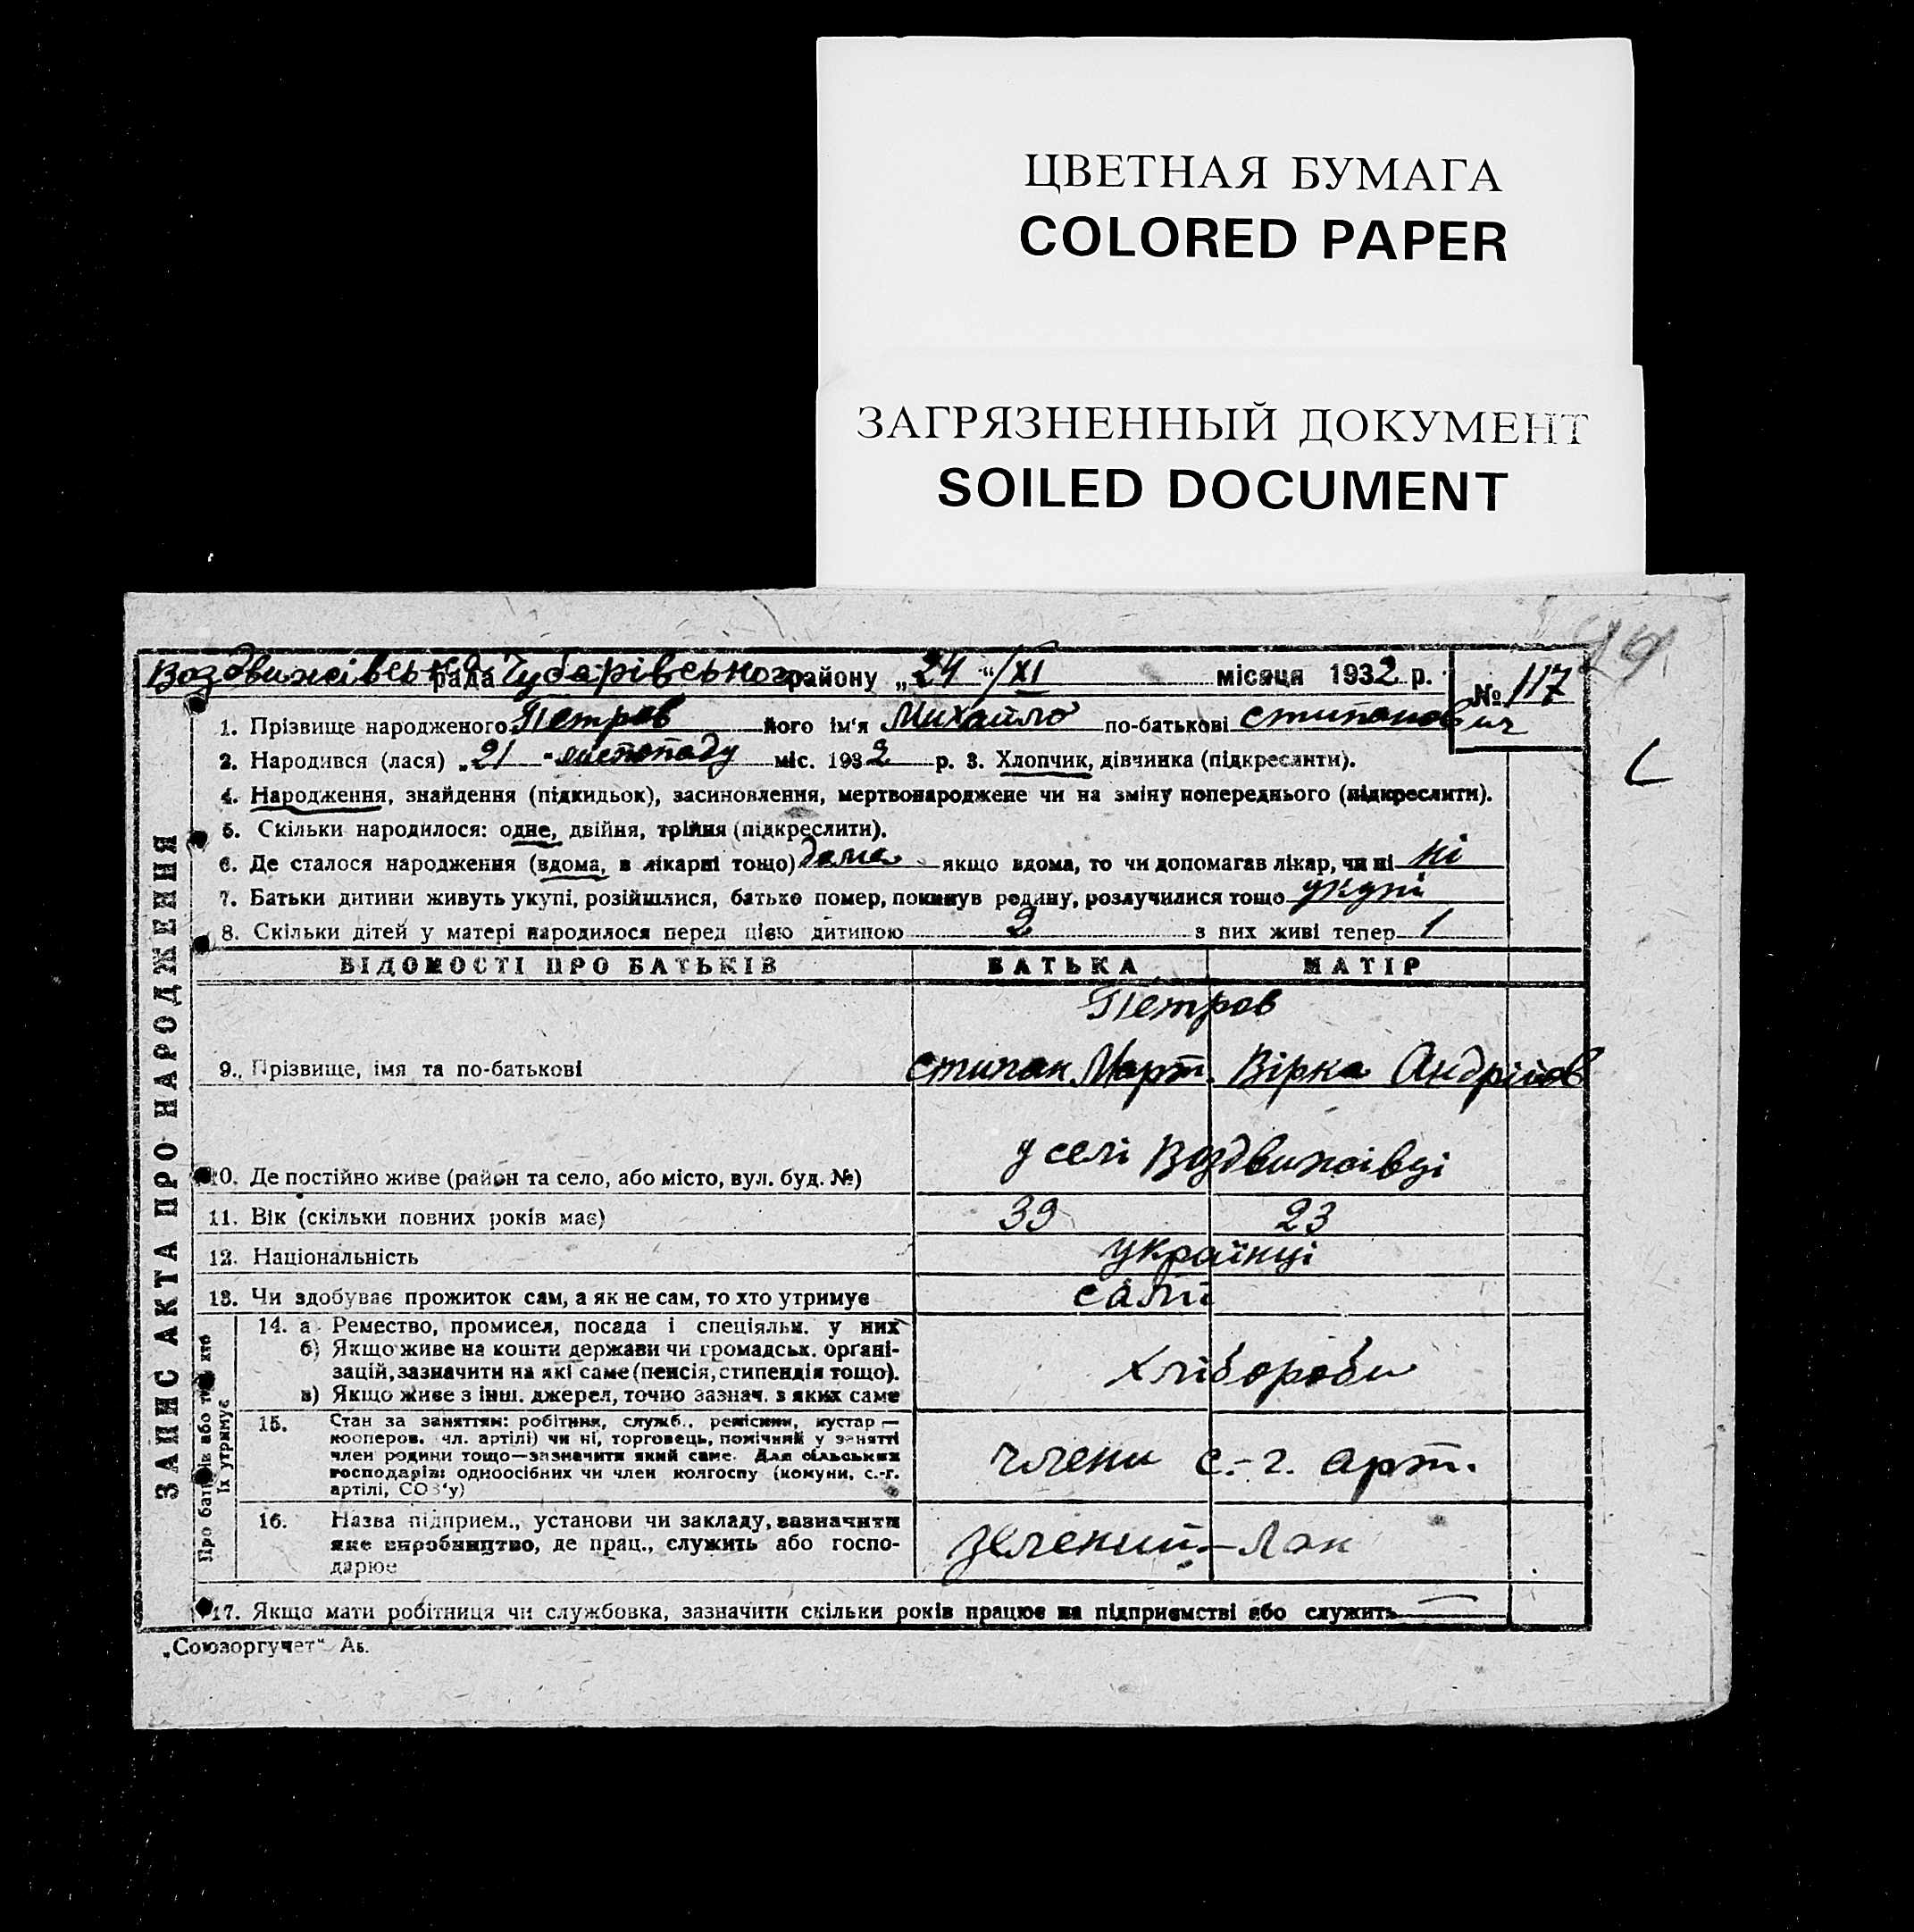 ЦВЕТНАЯ БУМАГА
COLORED PAPER
ЗАГРЯЗНЕННЫЙ ДОКУМЕНТ
SOILED DOCUMENT
Воздвижівська рада Чубарівського району „24“/XI місяця 1932 р. № 117
1. Прізвище народженого Петров його ім‘я Михайло по-батькові Стипанович
2. Народився (лася) „21“ листопаду міс. 1932 р. 3. Хлопчик, дівчинка (підкреслити).
4. Народження, знайдення (підкидьок), засиновлення, мертвонароджене чи на зміну попереднього (підкреслити).
5. Скільки народилося: одне, двійня, трійня (підкреслити).
6. Де сталося народження (вдома, в лікарні тощо) дома якщо вдома, то чи допомагав лікар, чи ні ні
7. Батьки дитини живуть укупі, розійшлися, батько помер, покинув родину, розлучилися тощо укупі
8. Скільки дітей у матері народилося перед цією дитиною 2 з них живі тепер 1
ЗАПИС АКТА ПРО НАРОДЖЕННЯ
ВІДОМОСТІ ПРО БАТЬКІВ БАТЬКА МАТІР
Петров
9. Прізвище, імя та по-батькові Стипан Март. Вірка Андріїов
у селі Воздвижівці
10. Де постійно живе (район та село, або місто, вул. буд. №)
11. Вік (скільки повних років має) 39 23
12. Національність українці
13. Чи здобуває прожиток сам, а як не сам, то хто утримує сами
Про батьків або тих хто
їх утримує
14. а Ремество, промисел, посада і спеціяльн. у них
б) Якщо живе на кошти держави чи громадськ. органі-
зацій, зазначити на які саме (пенсія, стипендія тощо).
в) Якщо живе з інш. джерел, точно зазнач. з яких саме
Хлібороби
15. Стан за заняттям: робітник, служб., ремісник, кустар —
кооперов. чл. артілі) чи ні, торговець, помічний у занятті
член родини тощо—зазначити який саме. Для сільських
господарів: одноосібних чи член колгоспу (комуни, с.-г.
артілі, СОЗ‘у)
члени с.-г. арт.
16. Назва підприєм., установи чи закладу, зазначити
яке виробництво, де прац., служить або госпо-
дарює
Зелений-Лан
17. Якщо мати робітниця чи службовка, зазначити скільки років працює на підприємстві або служить —
„Союзоргучет“ Ав.